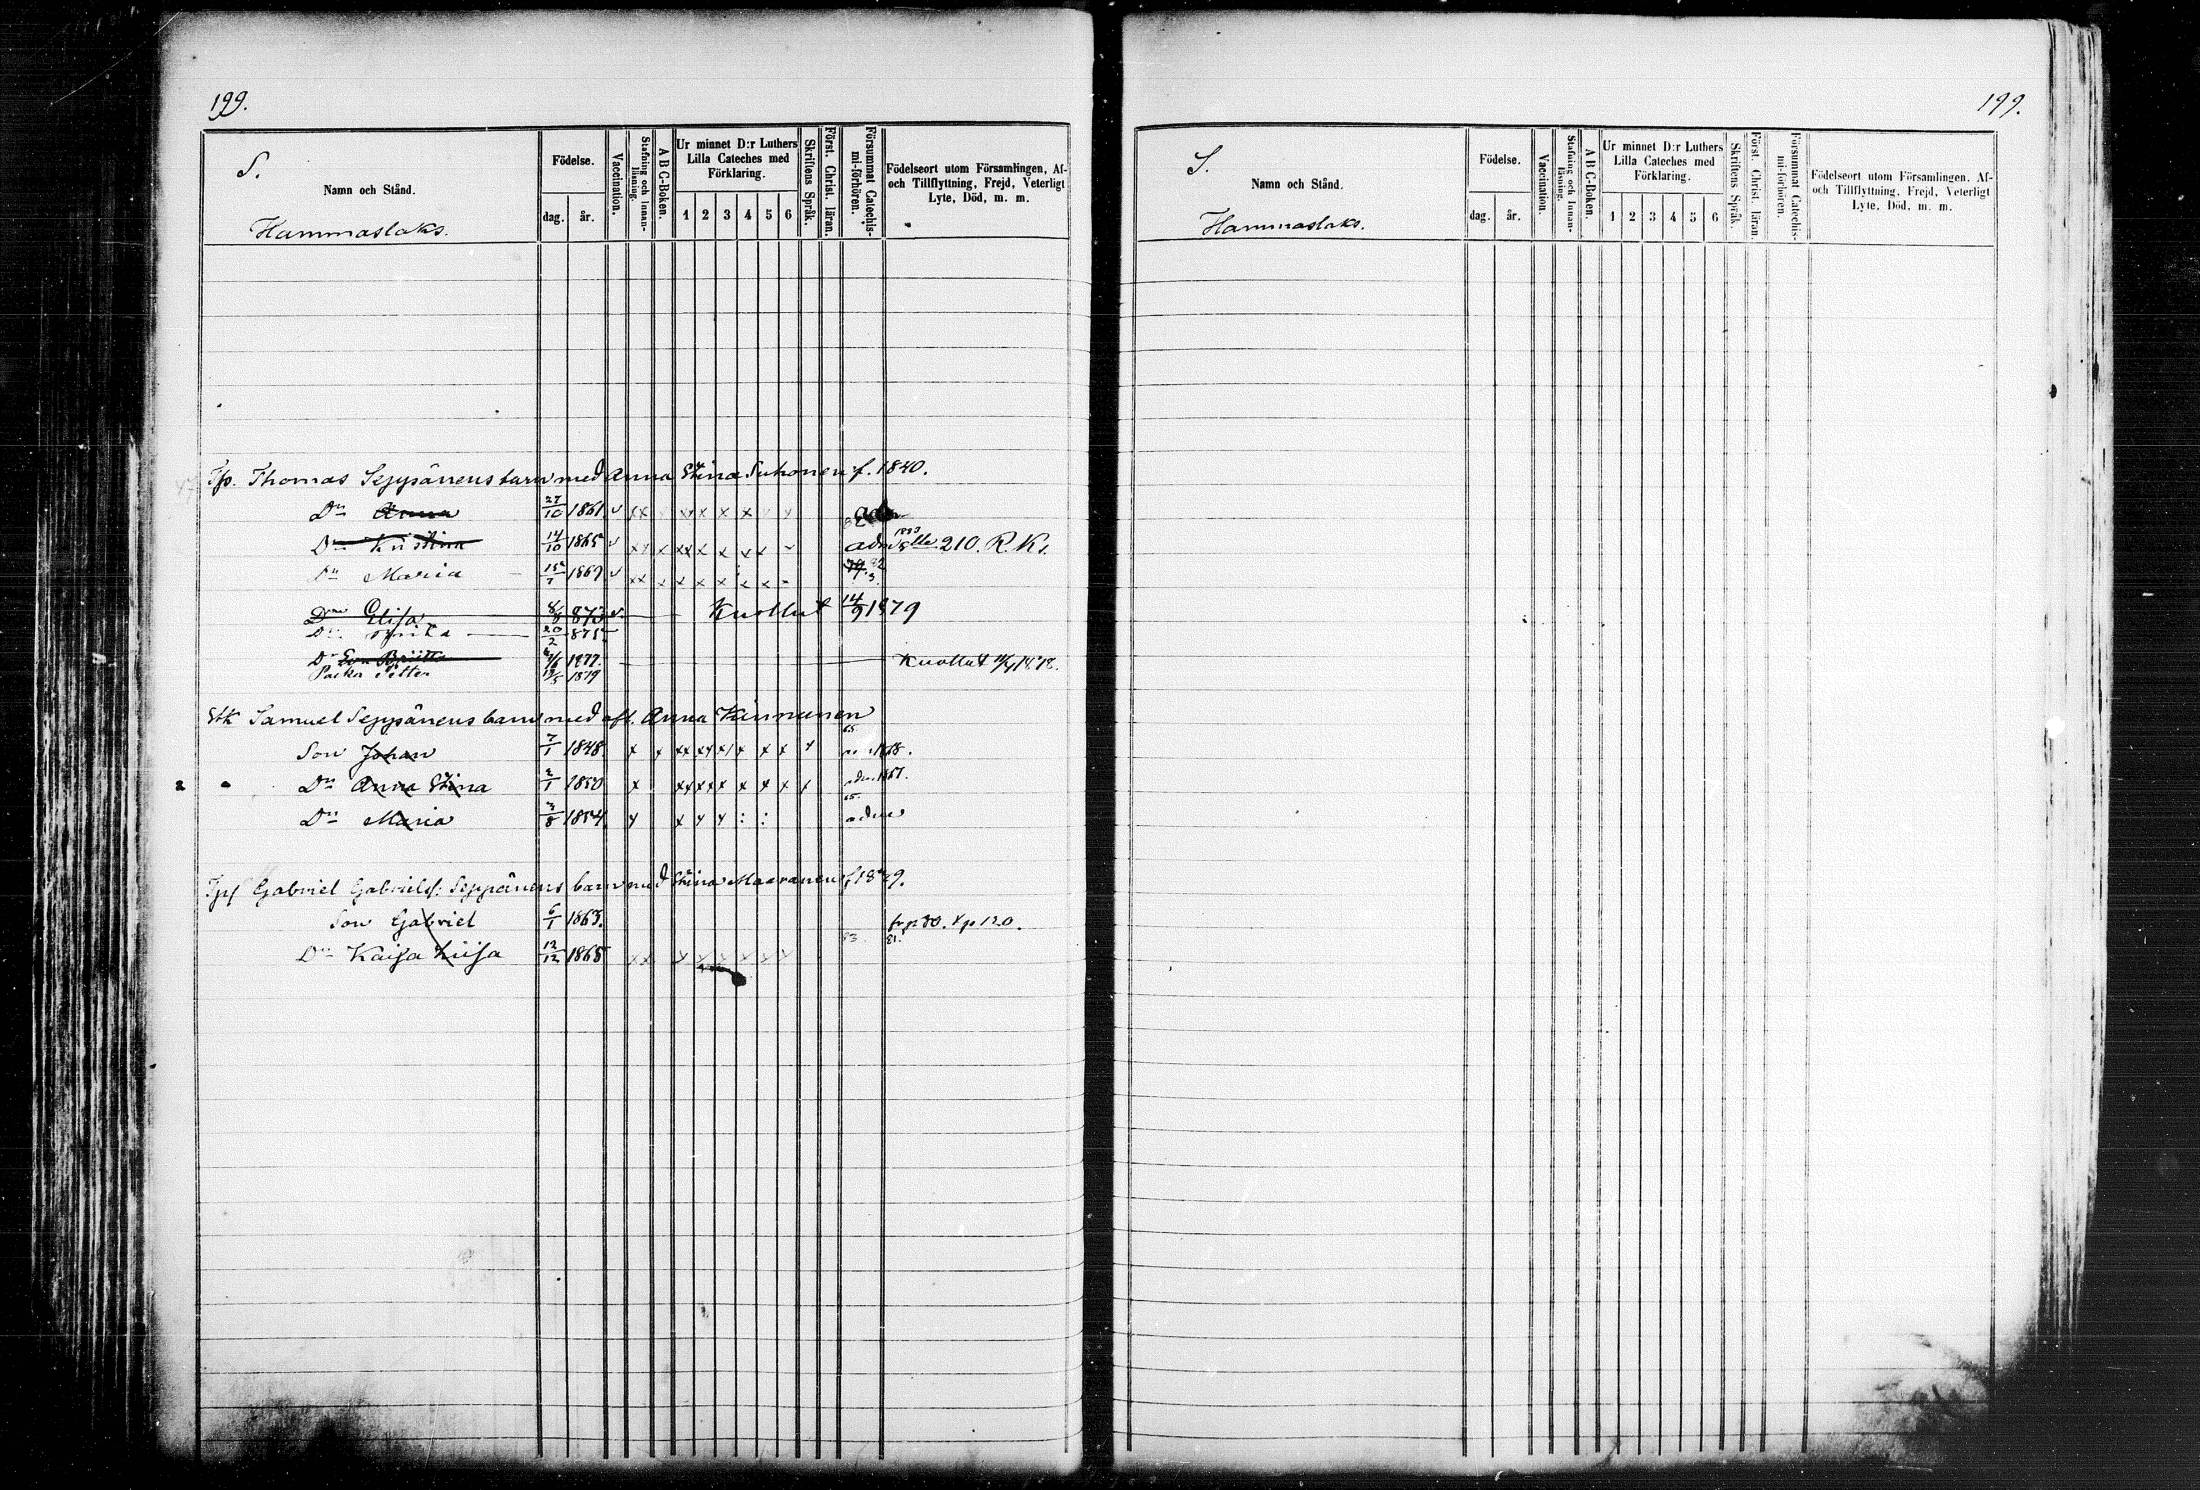 199.
S.
Namn och Stånd.
Hammaslaks.
Födelse.
dag. år.
Vaccination.
Stafning och Innan-läsning.
A B C-Boken.
Ur minnet D:r Luthers Lilla Cateches med Förklaring.
1 2 3 4 5 6
Skriftens Språk.
Först. Christ. läran.
Försummat Catechis-mi-förhören.
Födelseort utom Församlingen, Af- och Tillflyttning, Frejd, Veterligt Lyte, Död, m. m.
Thomas Seppänens barn med Anna Stina Suhonen f. 1840.
Dr Anna 27/10 1861. v x x x x x x
Dr Kristina 14/10 1865 v x x x x x x x x adm 1883 210. R. K.
Dr Maria 1869 v x x x x x x x x
Dr Elisa 8/8 873 v Kuollut 14/9 1879
Dr 20/2 875
Dr Eva 1877. Kuollut 1878.
Poika Petter 1879
Samuel Seppänens barn med afl. Anna Kinnunen
Son Johan 7/1 1848 x x x x x x x x x 65. 1868.
Dr Anna Stina 2/1 1850 x x x x x x x x x adm. 1867.
Dr Maria 3/8 1854 x x x x : : 65. adm
Gabriel Gabrielss: Seppänens barn med Stina Maaranen f. 1829.
Son Gabriel 6/1 1863. fr p 80. p 120.
Dr Kaisa Liisa 12/12 1865 x x x x x x x x 83. 81.
199.
S.
Namn och Stånd.
Hammaslaks.
Födelse.
dag. år.
Vaccination.
Stafning och Innan-läsning.
A B C-Boken.
Ur minnet D:r Luthers Lilla Cateches med Förklaring.
1 2 3 4 5 6
Skriftens Språk.
Först. Christ. läran.
Försummat Catechis-mi-förhören.
Födelseort utom Församlingen, Af- och Tillflyttning, Frejd, Veterligt Lyte, Död, m. m.